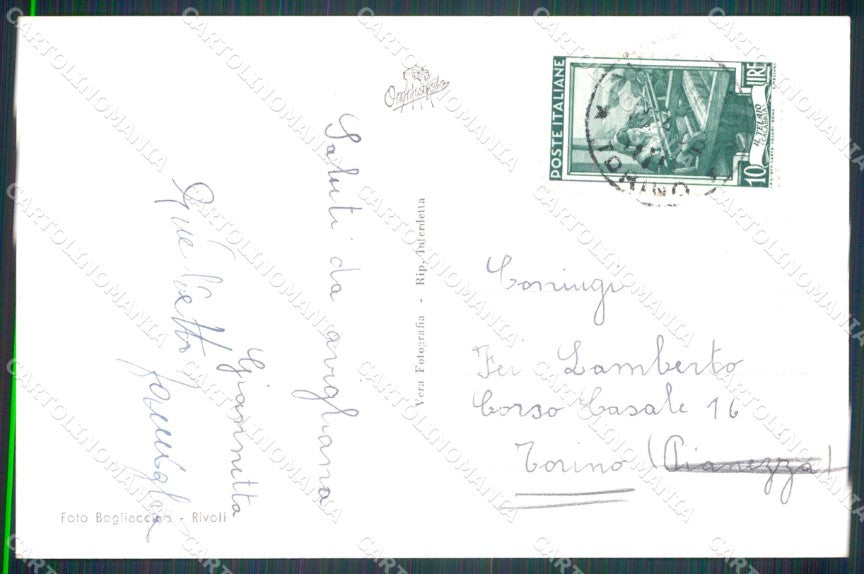 Saluti da avigliana
Giannetta
famiglia
Vera Fotografia - Rip. Interdetta
Foto Boglieccino - Rivoli
POSTE ITALIANE
LIRE
10
IL TELAIO
TORINO
Coniugi
Fei Lamberto
Corso Casale 16
Torino (Pianezza)
CARTOLINOMANIA